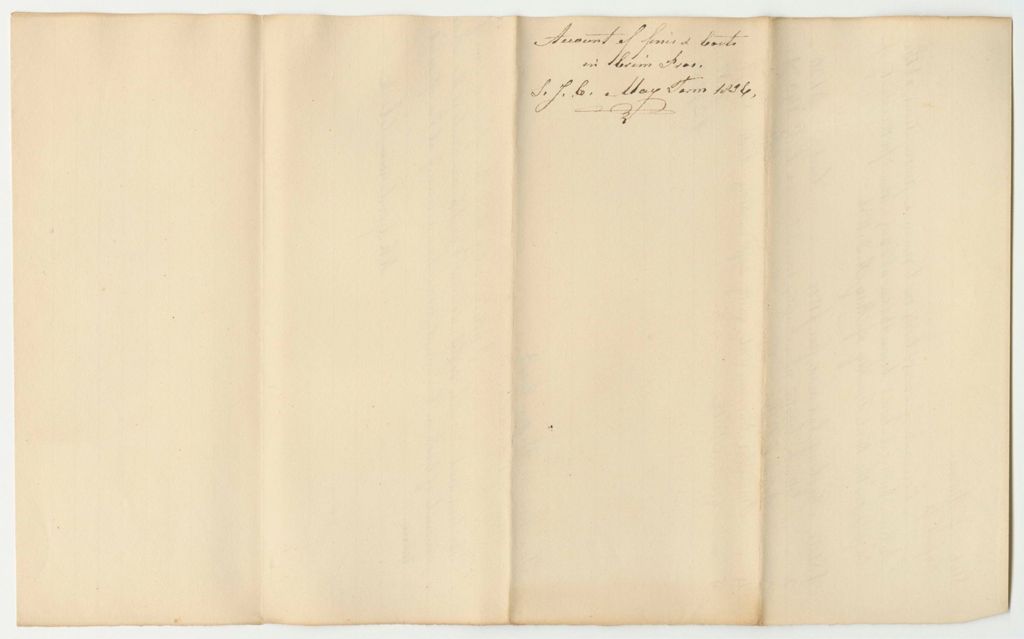 Account of fines & Costs
in Crim Pros.
S. J. C. May Term 1836.